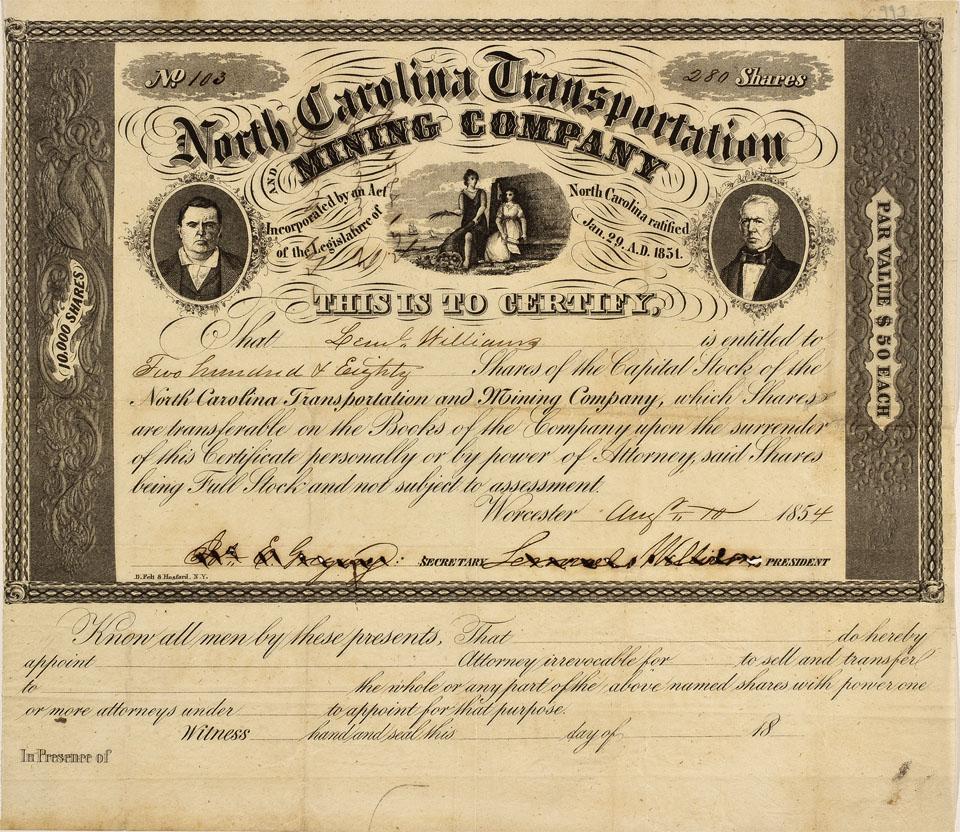 993
No. 103
280 Shares
North Carolina Transportation
AND MINING COMPANY
Incorporated by an Act
of the Legislature of
North Carolina ratified
Jan. 29. A.D. 1851.
10.000 SHARES
PAR VALUE $50 EACH
THIS IS TO CERTIFY,
That Leml. Williams is entitled to
Two hundred & Eighty Shares of the Capital Stock of the
North Carolina Transportation and Mining Company, which Shares
are transferable on the Books of the Company upon the surrender
of this Certificate personally or by power of Attorney, said Shares
being Full Stock and not subject to assessment.
Worcester Aug 10 1854
E. Gregory SECRETARY Lemuel Williams PRESIDENT
D. Felt & Hosford, N.Y.
Know all men by these presents, That do hereby
appoint Attorney irrevocable for to sell and transfer
to the whole or any part of the above named shares with power one
or more attorneys under to appoint for that purpose.
Witness hand and seal this day of 18
In Presence of